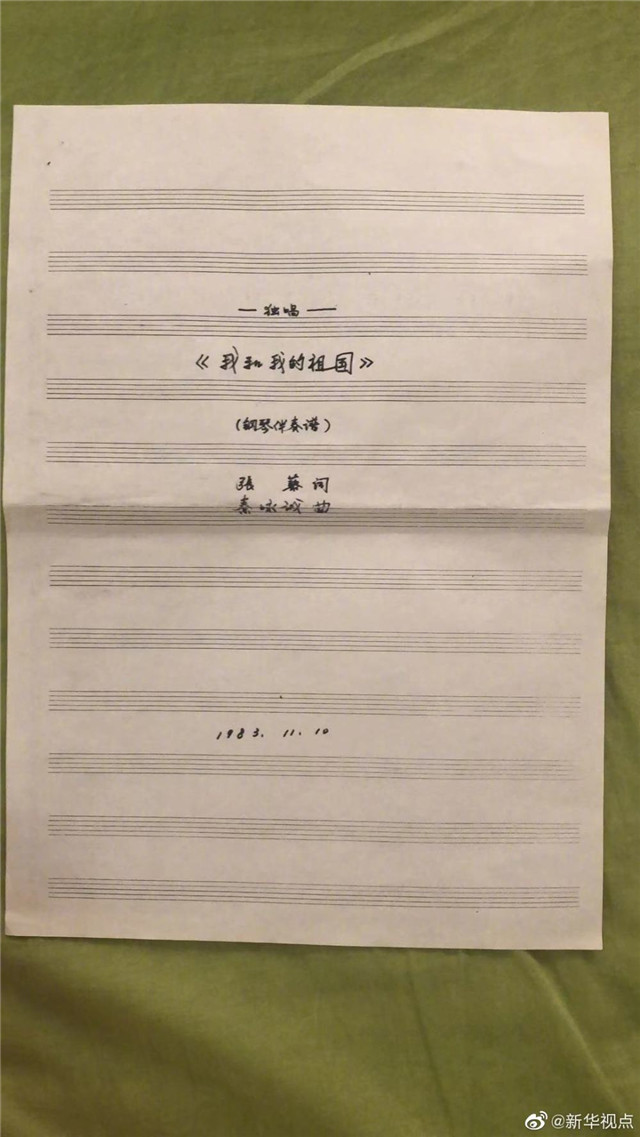 — 独唱 —
《我和我的祖国》
(钢琴伴奏谱)
張 藜 词
秦咏诚 曲
1983. 11. 10
@新华视点